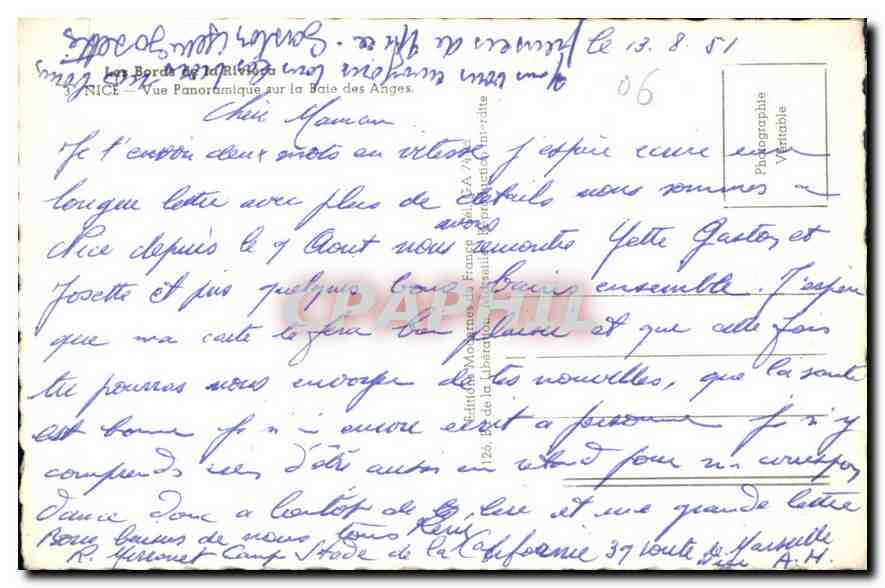 le 13.8.51
06
Les Bords de la Riviera
3. NICE - Vue Panoramique sur la Baie des Anges.
nous vous envoyons tous les deux nos
pensées de Nice. Gaston Yette Josette
Photographie
Véritable
Cher Maman
Je t'envoi deux mots en vitesse j'espère ecrire une
longue lettre avec plus de details nous sommes a
Nice depuis le 9 Aout nous avons remontés Yette Gaston et
Josette et pris quelques bons bains ensemble. J'espère
que ma carte te fera bon plaisir et que cette fois
tu pourras nous envoyer de tes nouvelles, que la santé
est bonne je n'ai encore ecrit a personne je n'y
comprends rien d'être aussi en retard pour ma correspon
dance donc a bientôt de te lire et une grande lettre
Bons baisers de nous tous René
R. Camp Stade de la Californie 39 route de Marseille
Nice A.M.
Editions Modernes du France
126, de la Libération, Marseille Reproduction Interdite
CPAPHIL